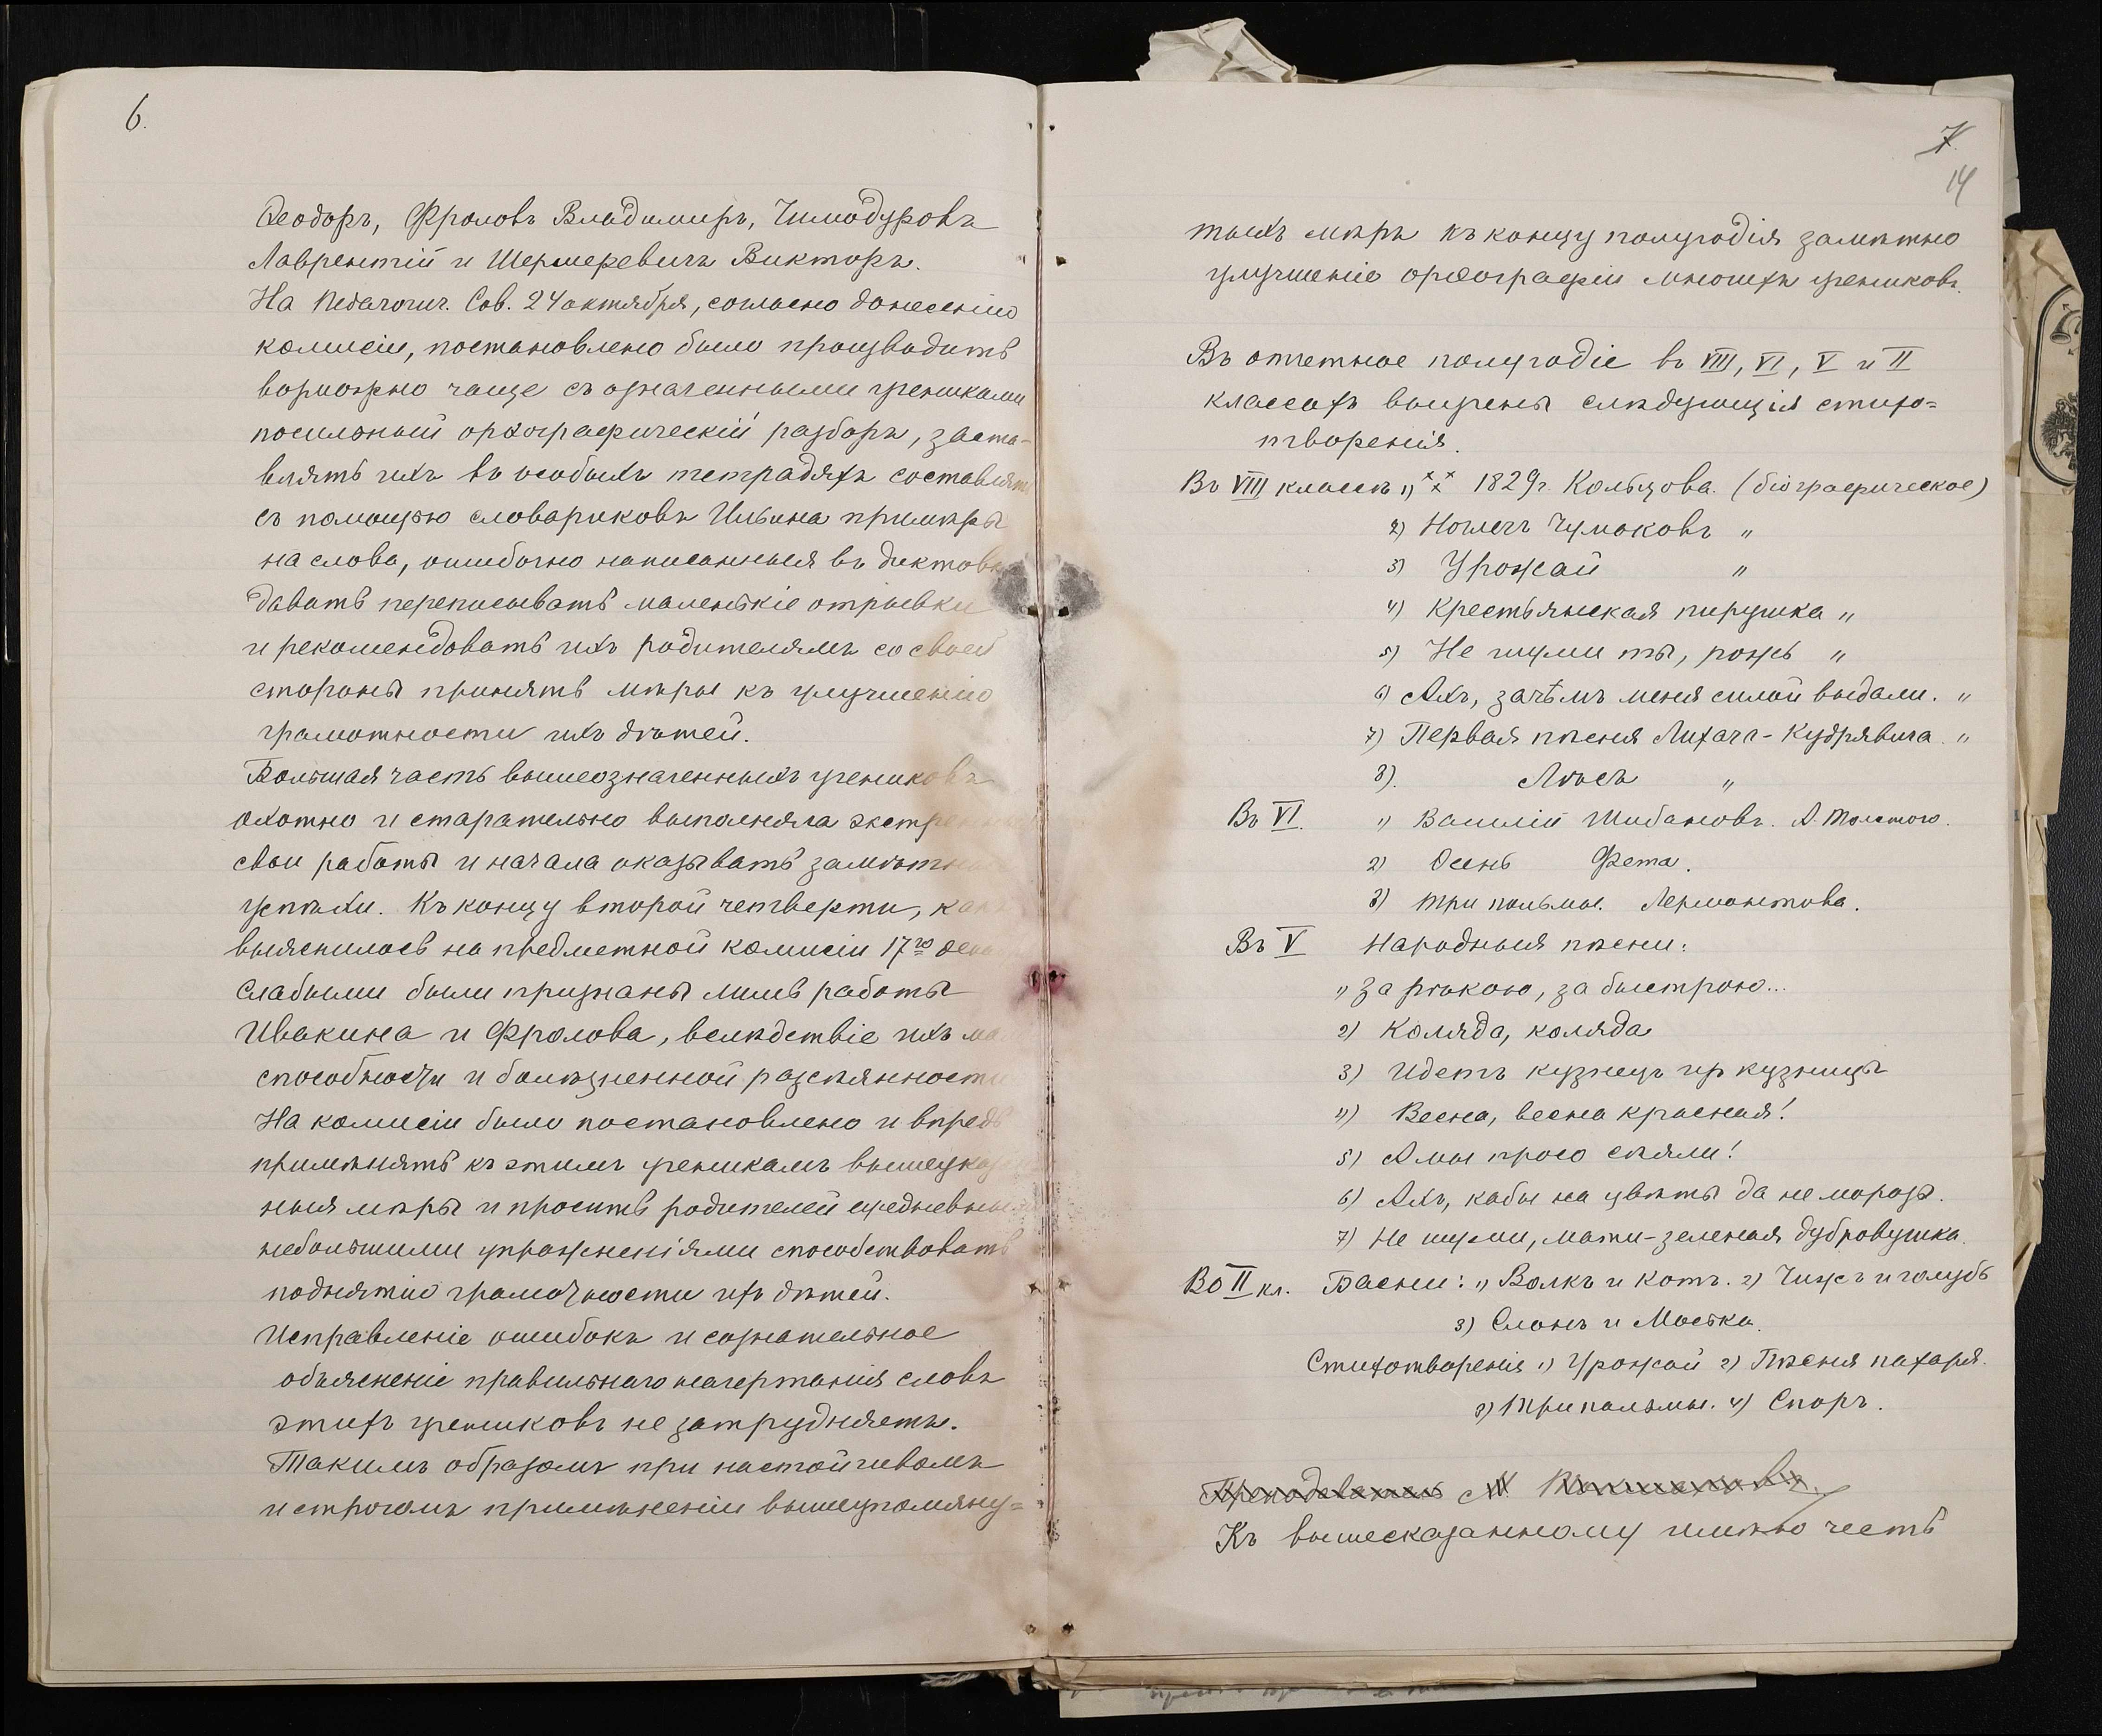 6.
Ѳеодоръ, Фроловъ Владимиръ, Чимодуровъ
Лаврентій и Шершеревичъ Викторъ.
На Педагогич. Сов. 24 октября, согласно донесенію
комисіи, постановлено было производить
возможно чаще съ означенными учениками
посильный орѳографическій разборъ, заста-
влять ихъ въ особыхъ тетрадяхъ составлять
съ помощью словариковъ Ильина примѣры
на слова, ошибочно написанныя въ диктовк
давать переписывать маленькіе отрывки
и рекомендовать ихъ родителямъ со своей
стороны принять мѣры къ улучшенію
грамотности ихъ дѣтей.
Большая часть вышеозначенныхъ учениковъ
охотно и старательно выполняла экстре
свои работы и начала оказывать замѣтн
успѣхи. Къ концу второй четверти, какъ
выяснилось на предметной комисіи 17го дека
слабыми были признаны лишь работы
Ивакина и Фролова, вслѣдствіе ихъ ма
способности и болѣзненной разсѣянности
На комисіи было постановлено и впредь
примѣнять къ этимъ ученикамъ вышеуказ
ныя мѣры и просить родителей ежедневны
небольшими упражненіями способствовать
поднятію грамотности ихъ дѣтей.
Исправленіе ошибокъ и сознательное
объясненіе правильнаго начертанія словъ
этихъ учениковъ не затрудняетъ.
Такимъ образомъ при настойчивомъ
и строгомъ примѣненіи вышеупомяну=
7.
14
тыхъ мѣръ къ концу полугодія замѣтно
улучшеніе орѳографіи многихъ учениковъ.
Въ отчетное полугодіе въ VIII, VI, V и II
классахъ выучены слѣдующія стихо=
творенія.
Въ VIII классѣ 1) ××× 1829г. Кольцова. (біографическое)
2) Ночлегъ Чумаковъ "
3) Урожай "
4) Крестьянская пирушка "
5) Не шуми ты, рожь "
6) Ахъ, зачѣмъ меня силой выдали. "
7) Первая пѣсня Лихача-Кудрявича. "
8). Лѣсъ "
Въ VI. 1) Василій Шибановъ. А. Толстого.
2) Осень Фета.
3) Три пальмы. Лермонтова.
Въ V Народныя пѣсни:
1) За рѣкою, за быстрою...
2) Коляда, коляда
3) Идетъ кузнецъ изъ кузницы
4) Весна, весна красная!
5) А мы просо сѣяли!
6) Ахъ, кабы на цвѣты да не морозы.
7) Не шуми, мати-зеленая дубровушка.
Во II кл. Басни: 1) Волкъ и Котъ. 2) Чижъ и голубь
3) Слонъ и Моська.
Стихотворенія 1) Урожай 2) Пѣсня пахаря.
3) Три пальмы. 4) Споръ.
Преподаватель
Къ вышесказанному имѣю честь